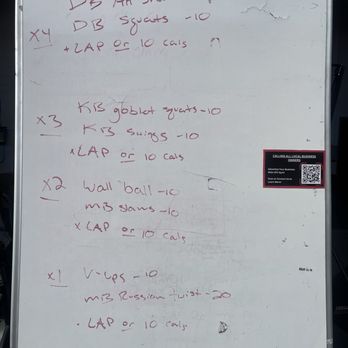 DB
x4 DB squats -10
+ LAP or 10 cals
x3 KB goblet squats -10
KB swings -10
x LAP or 10 cals
x2 Wall ball -10
MB slams -10
x LAP or 10 cals
x1 V-ups -10
MB Russian twist -20
. LAP or 10 cals
CALLING ALL LOCAL BUSINESS OWNERS